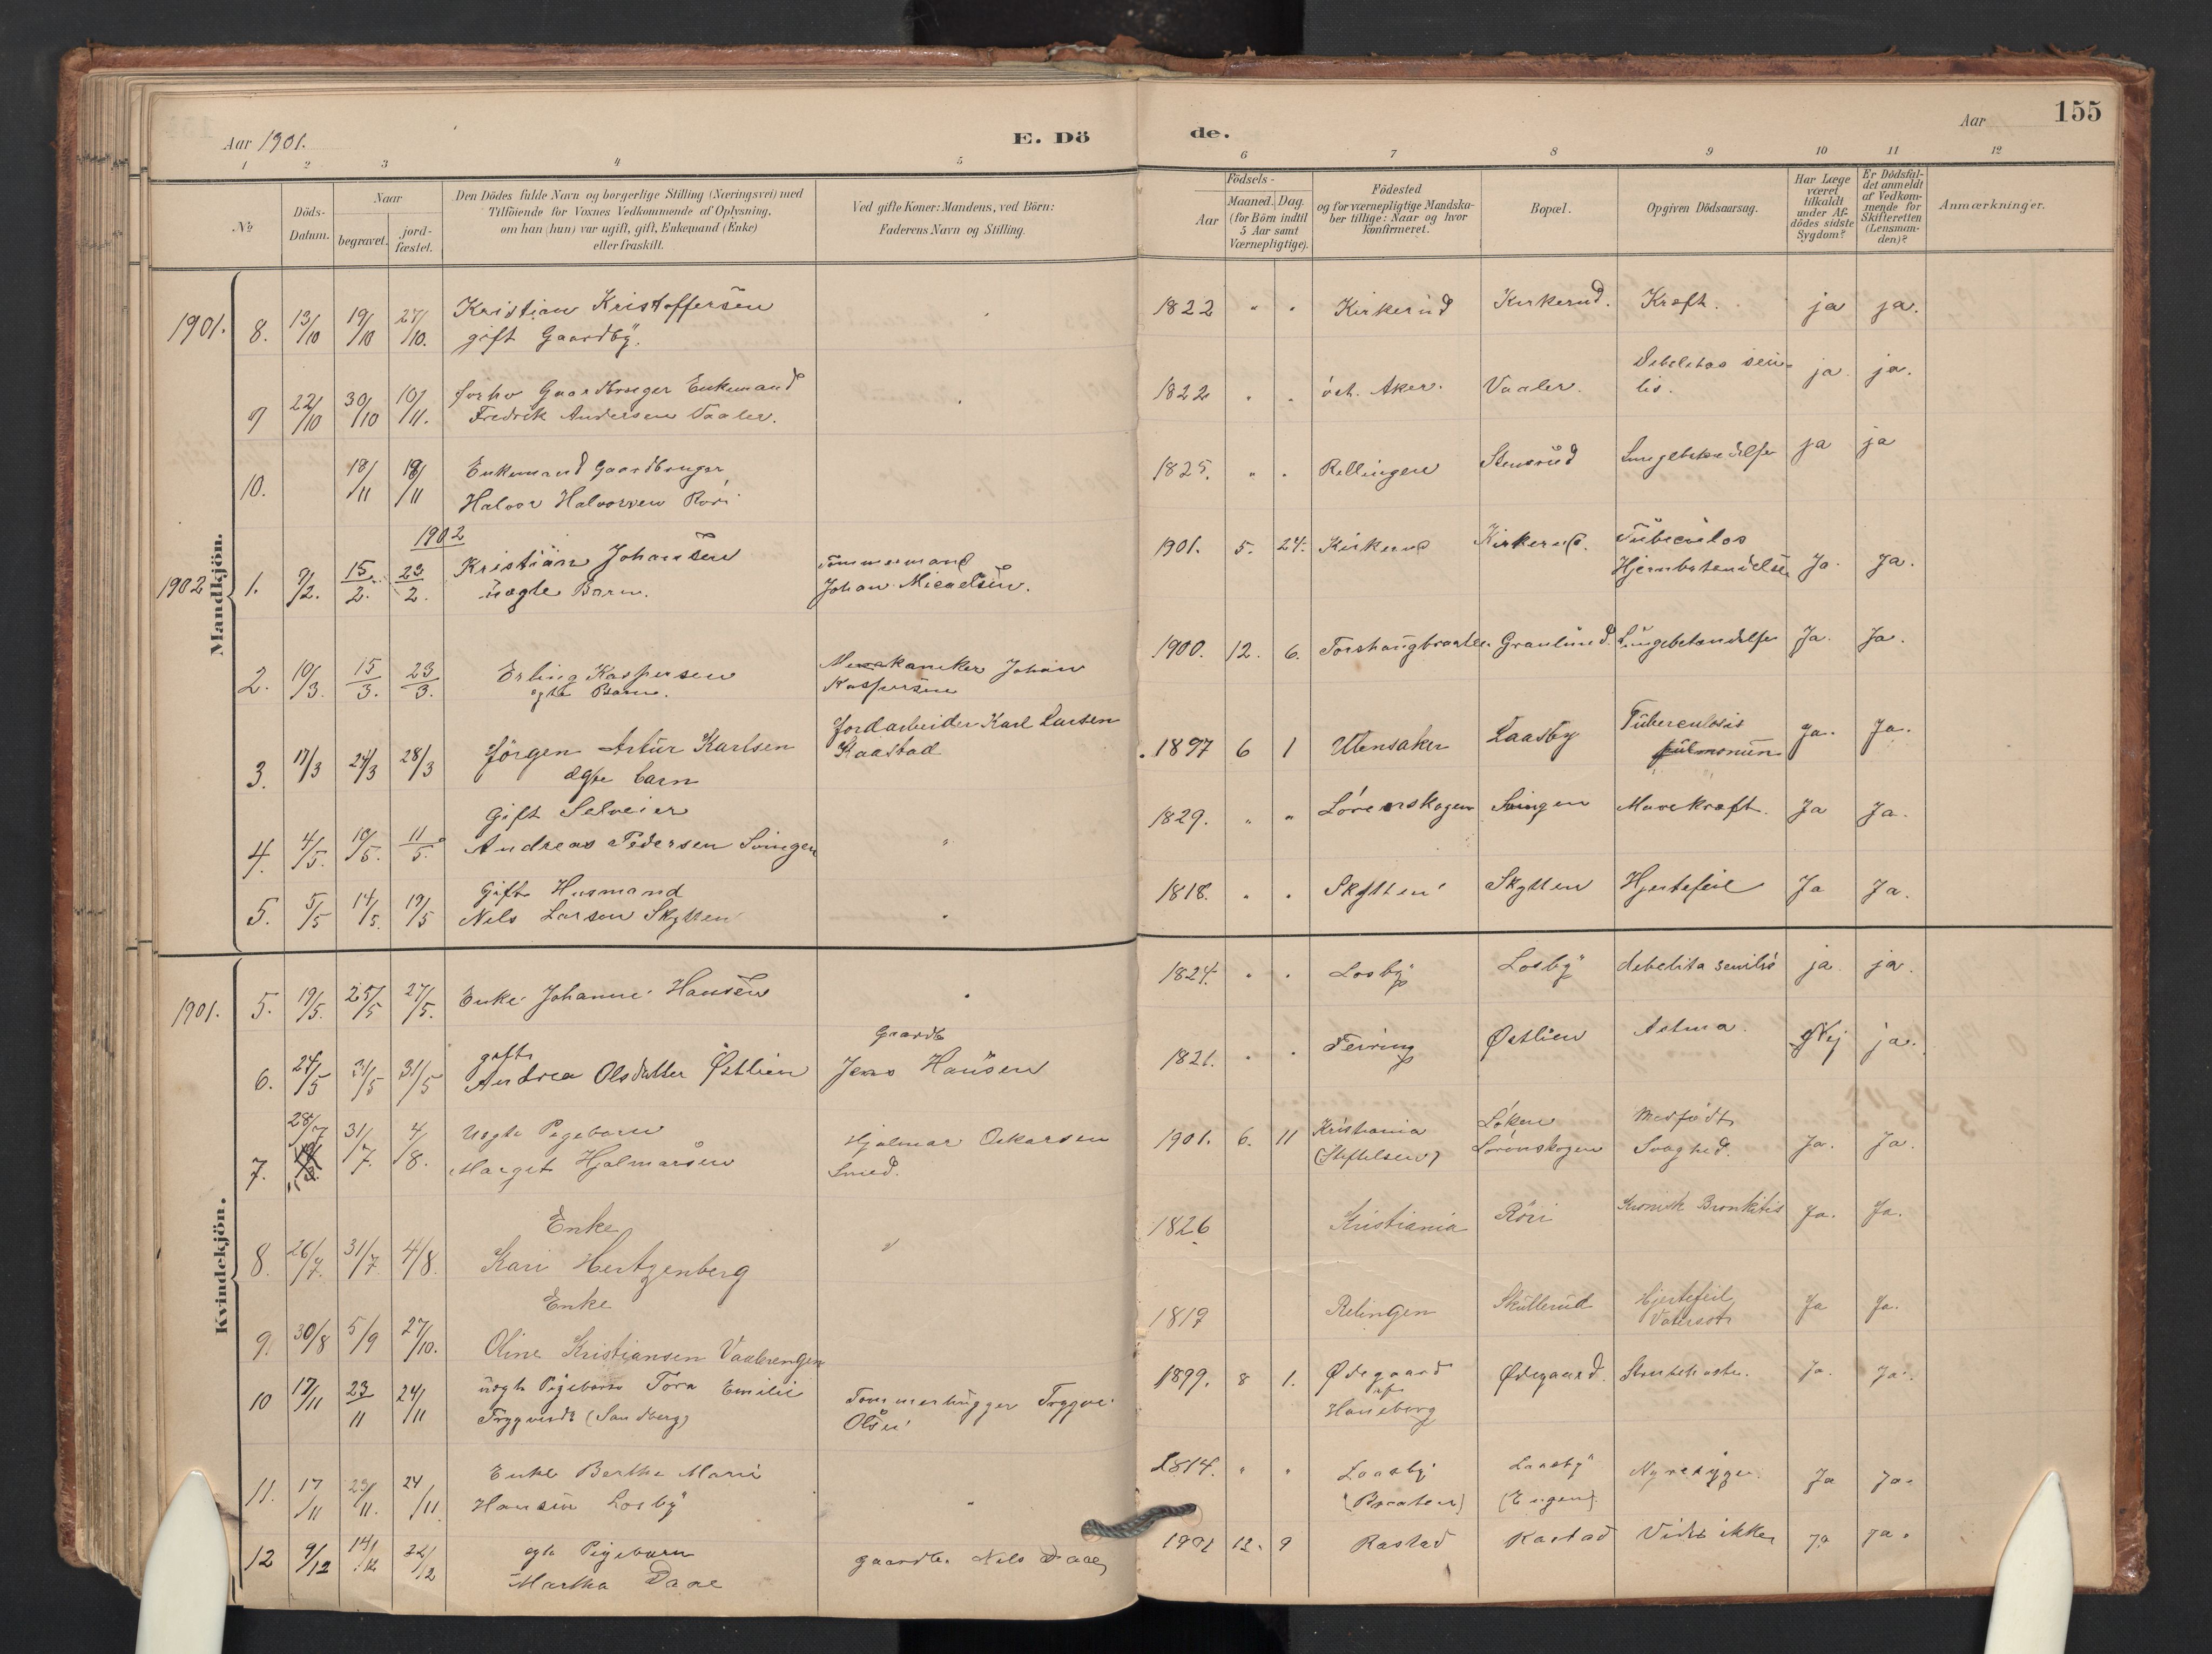 Aar 1901.
E. Dö
de.
Aar
155
1 2 3 4 5 6 7 8 9 10 11 12
No
Döds-
Datum.
Naar
begravet.
jord-
fæstet.
Den Dödes fulde Navn og borgerlige Stilling (Næringsvei) med
Tilföiende for Voxnes Vedkommende af Oplysning,
om han (hun) var ugift, gift, Enkemand (Enke)
eller fraskilt.
Ved gifte Koner: Mandens, ved Börn:
Faderens Navn og Stilling.
Födsels-
Aar
Maaned. Dag.
(for Börn indtil
5 Aar samt
Værnepligtige).
Födested
og for værnepligtige Mandska-
ber tillige: Naar og hvor
konfirmeret.
Bopæl.
Opgiven Dödsaarsag.
Har Læge
været
tilkaldt
under Af-
dödes sidste
Sygdom?
Er Dödsfal-
det anmeldt
af Vedkom-
mende for
Skifteretten
(Lensman-
den)?
Anmærkninger.
Mandkjön.
1901. 8. 13/10 19/10 27/10. Kristian Kristoffersen
gift Gaardbÿ.
1822 " " Kirkerud Kirkerud. Kræft. ja ja.
9 22/10 30/10 10/11. forhv Gaardbruger Enkemand
Fredrik Andersen Vaaler.
1822 " " öst. Aker. Vaaler. Debelitas seni-
lis. ja. ja.
10. 18/11 18/11 Enkemand Gaardbruger
Halvor Halvorsen Röri
1825. " " Rellingen Stensrud Lungebetændelse ja ja
1902
1902 1. 9/2. 15/2. 23/2. Kristian Johansen
uægte Barn.
Tømmermand
Johan Micaelsen.
1901. 5. 24. Kirkerud Kirkerud. Tuberculos
Hjernbetændelse Ja. Ja.
2. 10/3. 15/3. 23/3. Erling Kaspersen
ægte Barn.
Johan
Kaspersen
1900. 12. 6. Torshaugbraaten Granlund. Lungebetændelse Ja. Ja.
3. 17/3 24/3 28/3 Jörgen Artur Karlsen
ægte barn
Jordarbeider Karl Larsen
Kaastad
1897 6 1 Utensaker Laasby Tuberculosis
pulmonum Ja. Ja.
4. 4/5. 10/5. 11/5. Gift Selveier
Andreas Pedersen Svingen "
1829. " " Lörenskogen Svingen Mavekræft. Ja Ja.
5. 5/5 14/5. 19/5 Gift Husmand
Nils Larsen Skytten
1818. " " Skytten Skytten Hjertefeil Ja Ja.
Kvindekjön.
1901. 5. 19/5. 25/5 27/5. Enke Johanne Hansen
1824. " " Losbÿ Losbÿ debelita senilis ja ja.
6. 24/5 31/5 31/5 gift
Andrea Olsdatter Østlien
Gaardb
Jens Hansen
1821. " " Feiring Østlien Astma. Nej ja.
7. 28/7 31/7. 4/8. Uægte Pigebarn
Marget Hjalmarsen
Hjalmar Oskarsen
Smed.
1901. 6. 11 Kristiania
(Stiftelsen)
Løken
Lörenskogen
Medfødt
Svaghed. Ja. Ja.
8. 26/7. 31/7 4/8. Enke
Kari Hertzenberg
1826 Kristiania Röri Kronisk Bronkitis Ja. Ja.
9. 30/8 5/9 27/10. Enke
Oline Kristiansen Vaalerengen
1819 Relingen Skullerud Hjertefeil
Vatersot Ja Ja.
10 17/11 23/11 24/11 uægte Pigebarn Tora Emilie
Trygvesdt (Sandberg)
Tømmerhugger Trygve
Olsen
1899. 8 1. Ødegaard
u/
Haneborg
Ødegaard. Strubehoste. Ja. Ja.
11. 17/11 23/11. 24/11 Enke Berthe Marie
Hansen Losbÿ "
1814. " " Laasby
(Braaten)
Laasbÿ
(Engen).
Nyresyge. Ja Ja.
12 9/12 14/12 22/12 ægte Pigebarn
Martha Daae
gaardb. Nils Daae
1901 12. 9 Rastad Rastad Vides ikke ja ja.